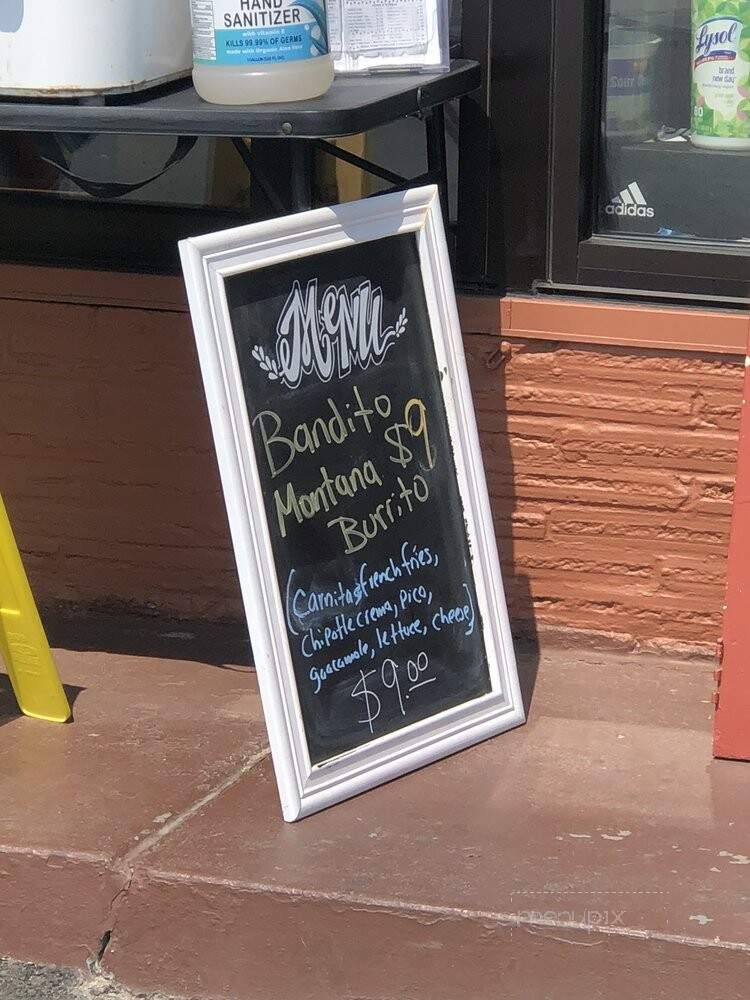 HAND
SANITIZER
with vitamin E
KILLS 99.99% OF GERMS
made with Organic Aloe Vera
Lysol
brand
new day
80
adidas
MeNU
Bandito
$9
Montana
Burrito
(Carnitas, french fries,
Chipotle crema, pico,
guacamole, lettuce, cheese)
$9.00